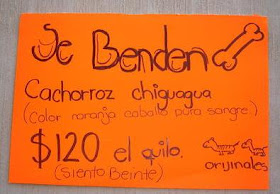 Se Benden
Cachorroz chiguagua
(Color naranja caballo pura sangre.)
$120 el quilo.
(Siento Beinte)
orijinales